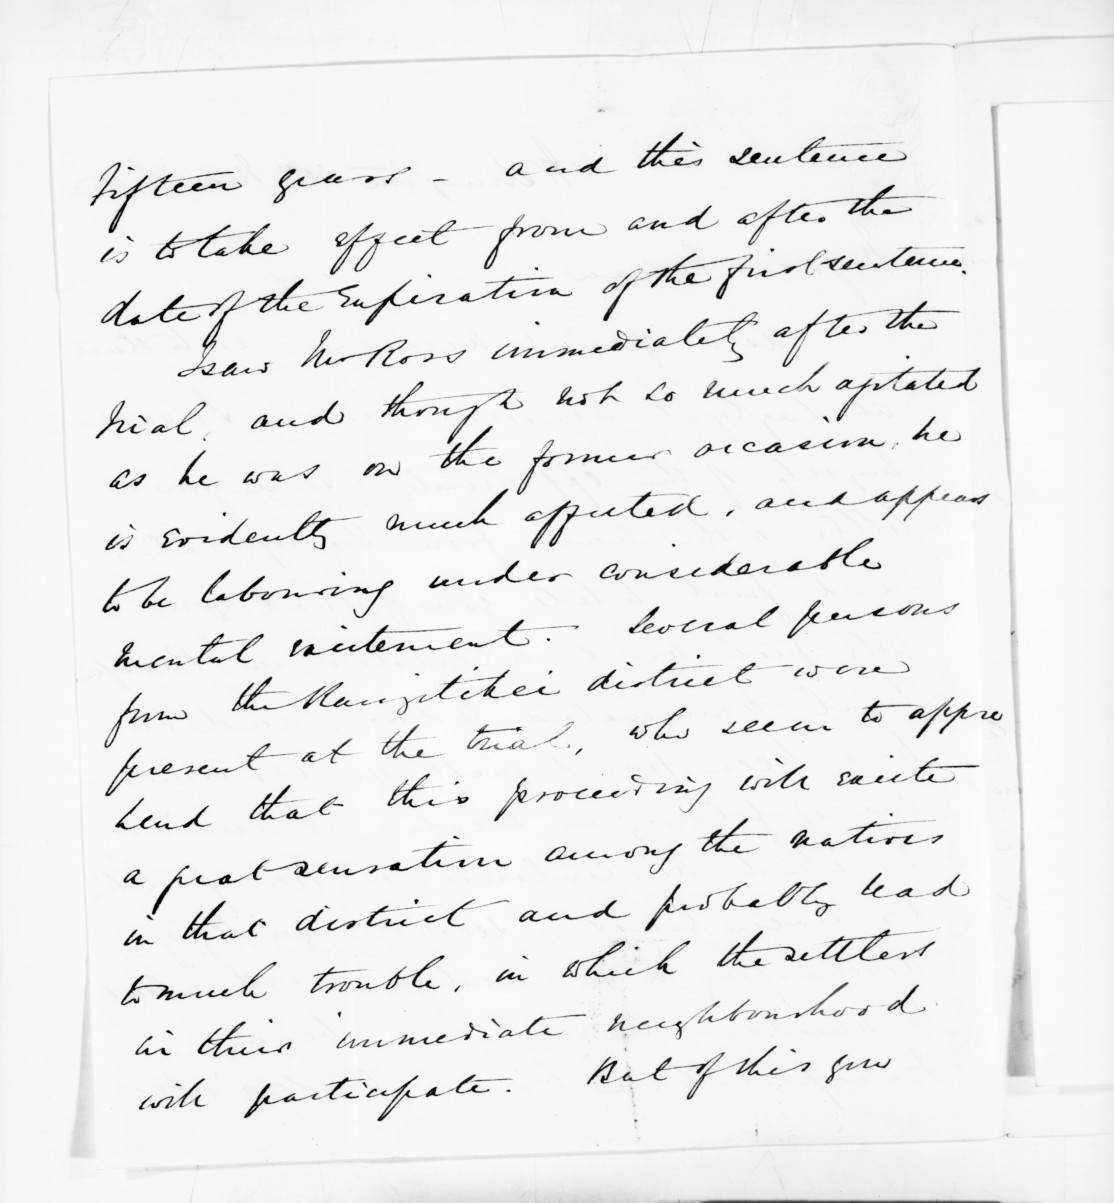 Fifteen years - and this sentence
is to take effect from and after the
date of the Expiration of the first sentence.
I saw Mr Ross immediately after the
trial, and though not so much agitated
as he was on the former occasion, he
is evidently much affected, and appears
to be labouring under considerable
mental excitement. Several persons
from the Rangitikei district were
present at the trial, who seem to appre
hend that this proceeding will excite
a great sensation among the natives
in that district and probably lead
to much trouble, in which the settlers
in their immediate neighbourhood
will participate. But of this you